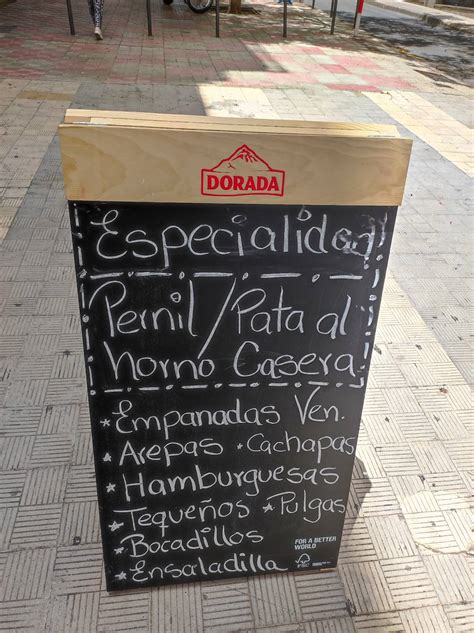 DORADA
Especialidad
Pernil/Pata al
horno Casera
* Empanadas Ven.
* Arepas * Cachapas
* Hamburguesas
* Tequeños * Pulgas
* Bocadillos
* Ensaladilla
FOR A BETTER
WORLD
FSC